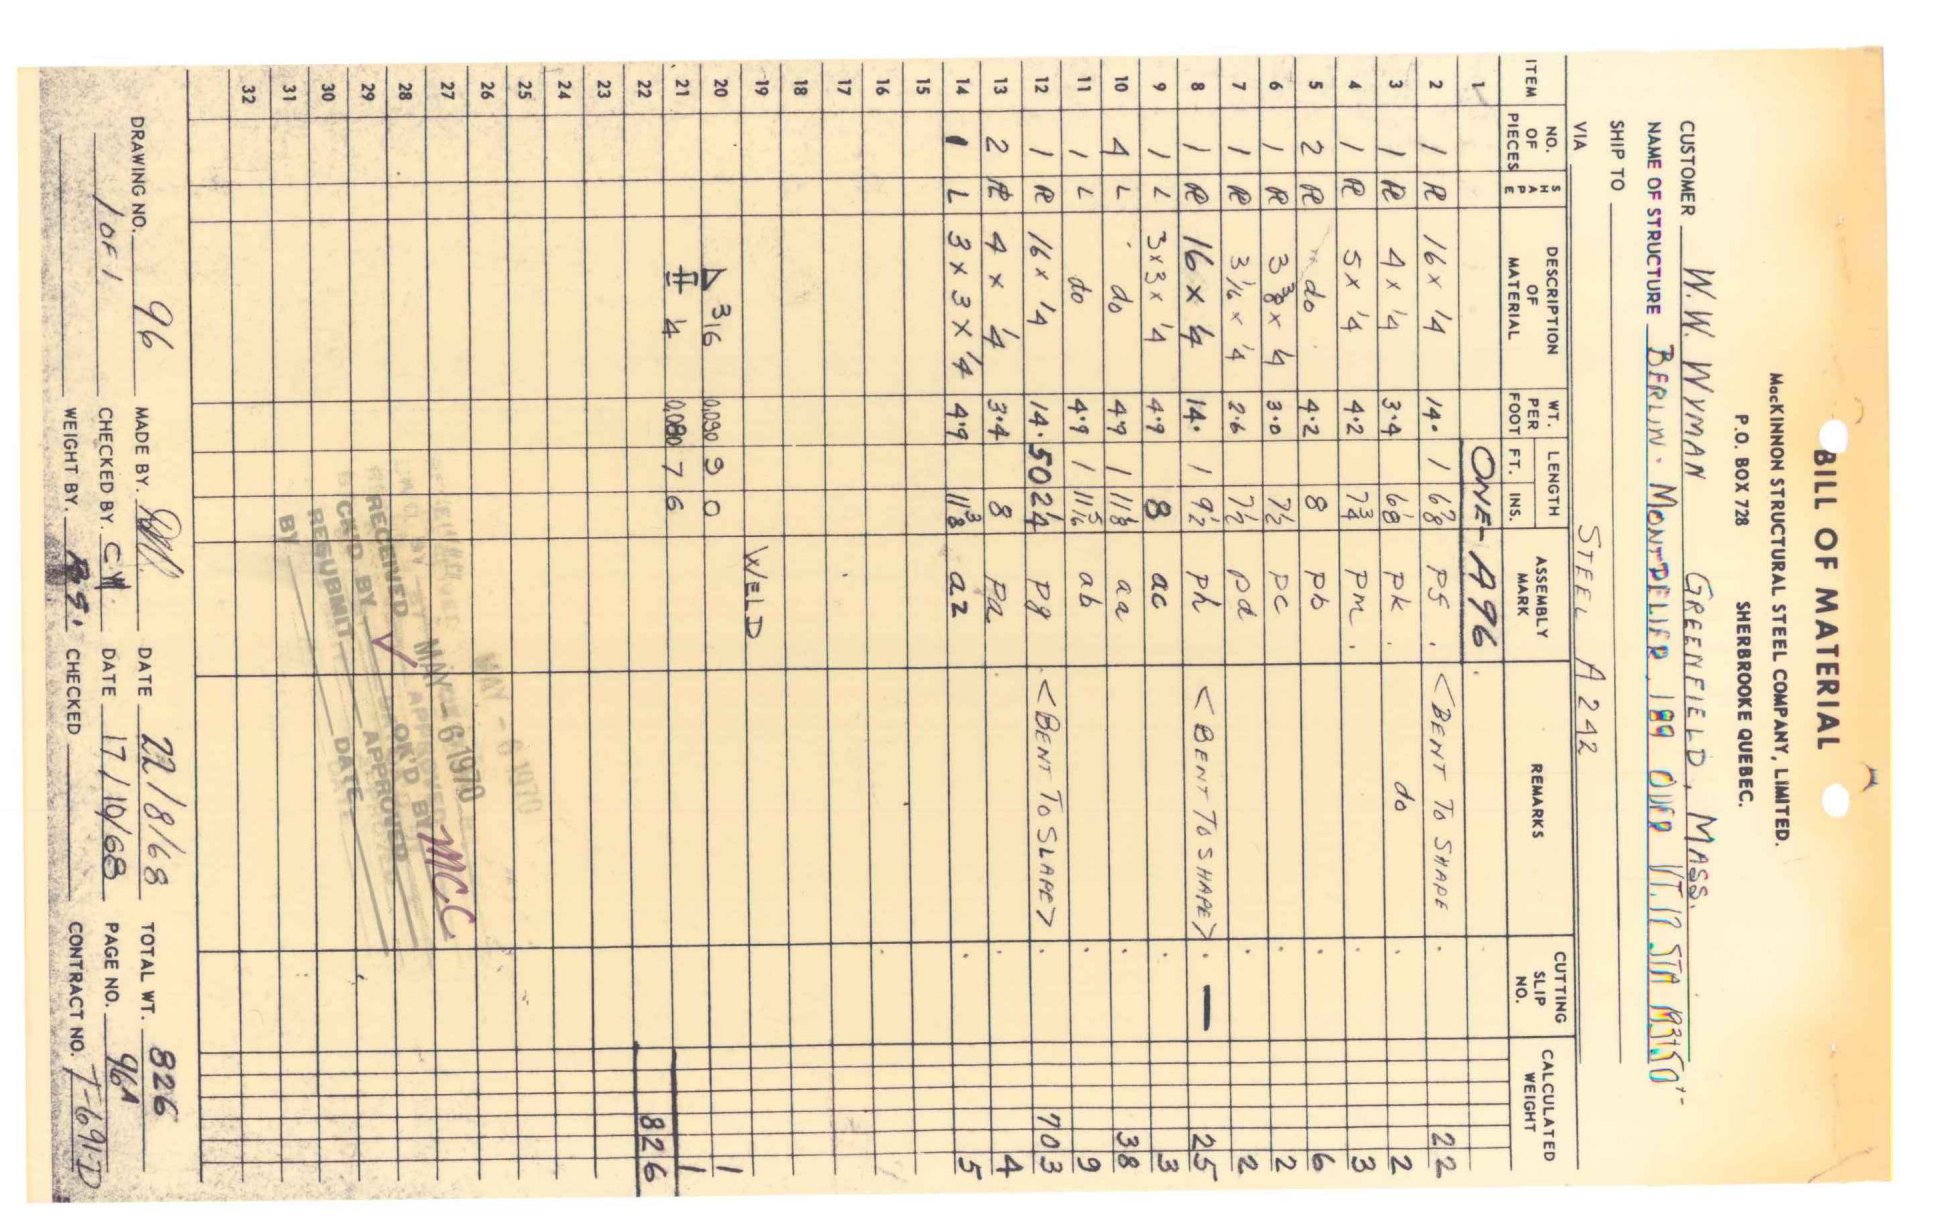 BILL OF MATERIAL
MacKINNON STRUCTURAL STEEL COMPANY, LIMITED.
P.O. BOX 728 SHERBROOKE QUEBEC.
CUSTOMER W. W. WYMAN GREENFIELD, MASS.
NAME OF STRUCTURE BERLIN - MONTPELIER 189 OVER VT. 12 STA 193+50
SHIP TO
VIA STEEL A 242
ITEM NO. OF PIECES SHAPE DESCRIPTION OF MATERIAL WT. PER FOOT LENGTH FT. INS. ASSEMBLY MARK REMARKS CUTTING SLIP NO. CALCULATED WEIGHT
1 ONE - A96
2 1 PL 16 x 1/4 14. 1 6 7/8 <BENT TO SHAPE 22
3 1 PL 4 x 1/4 3.4 6 1/8 pk do 2
4 1 PL 5 x 1/4 4.2 7 3/4 pm 3
5 2 PL do 4.2 8 pb 6
6 1 PL 3 3/8 x 1/4 3.0 7 1/2 pc 2
7 1 PL 3 1/16 x 1/4 2.6 7 1/2 pd 2
8 1 PL 16 x 1/4 14. 1 9 1/2 ph <BENT TO SHAPE> - 25
9 1 L 3 x 3 x 1/4 4.9 8 ac 3
10 4 L do 4.9 1 11 1/8 aa 38
11 1 L do 4.9 1 11 5/16 ab 9
12 1 PL 16 x 1/4 14. 50 2 1/4 pg <BENT TO SLAPE> 703
13 2 PL 4 x 1/4 3.4 8 pa 4
14 1 L 3 x 3 x 1/4 4.9 11 3/8 az 5
15
16
17
18
19 WELD
20 3/16 0.090 9 0 1
21 1/4 0.080 7 6 1
22 826
23
24
25
26
27
28
29
30
31
32
MAY - 6 1970
RECEIVED MAY - 6 1970
CK'D BY OK'D BY M.C.C
RESUBMIT APPROVED
BY DATE
DRAWING NO. 96 MADE BY. DATE 22/8/68 TOTAL WT. 826
1 OF 1 CHECKED BY. DATE 17/10/68 PAGE NO. 96A
WEIGHT BY. CHECKED CONTRACT NO. T-691-D